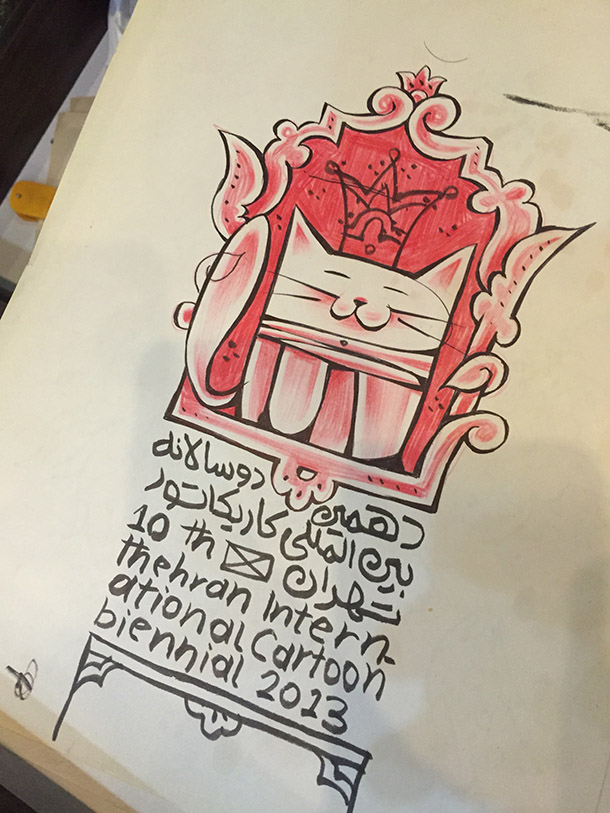 دهمین دوسالانه
بین المللی کاریکاتور
تهران
10 th
thehran Intern-
ational Cartoon
biennial 2013